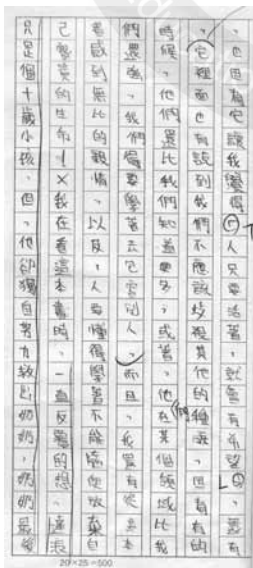 、也因有它讓我覺得人只要活著,就會有希望,還有
,它裡面也有談到我們不應該歧視其他的種族,但有的
時候,他們還比我們知道更多,或著他們在某個領域比我
們還強,我們得要學著去包容別人,而且,我覺有從本
書感到無比的親情,以及,人要懂得學著不能隨便放棄自
己寶貴的生命!我在看這本書時,一直反覆的想,達浪
只是個十歲小孩,但,他卻獨自努力救出奶奶,奶奶最後
20×25=500